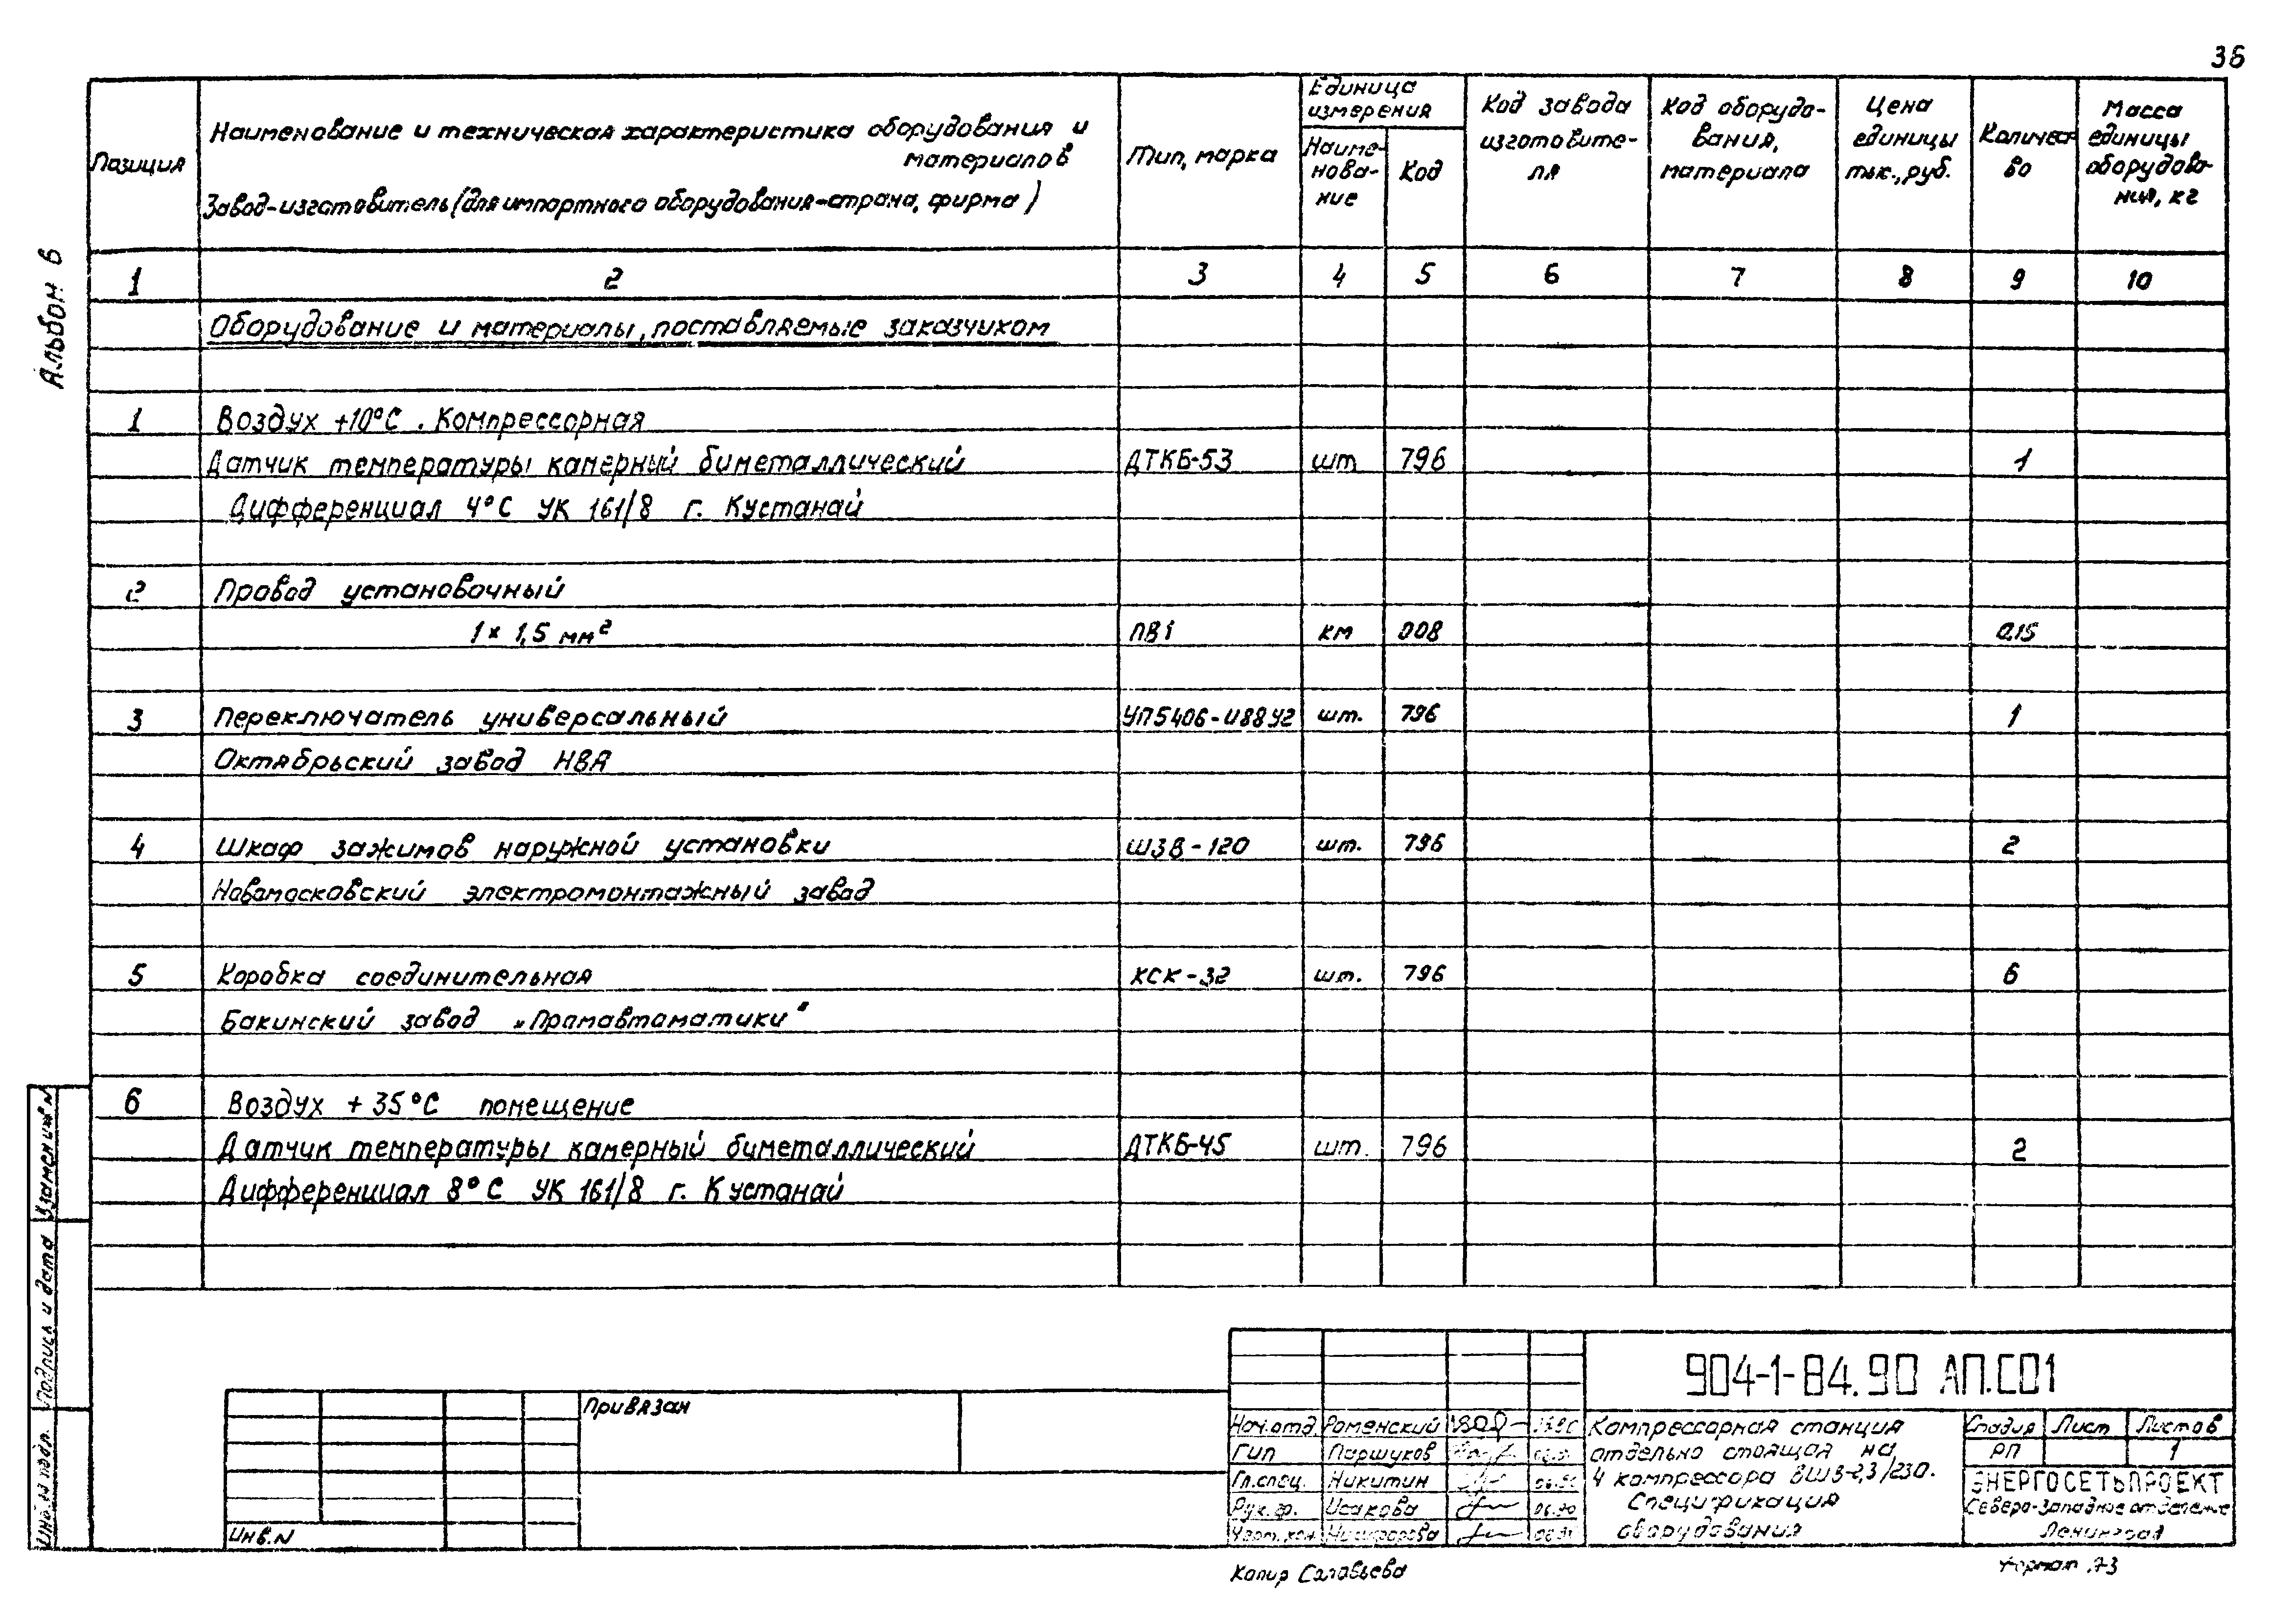 36
Альбом 6
Позиция
Наименование и техническая характеристика оборудования и
материалов
Завод-изготовитель (для импортного оборудования-страна, фирма)
Тип, марка
Единица
измерения
Наиме-
нова-
ние
Код
Код завода
изготовите-
ля
Код оборудо-
вания,
материала
Цена
единицы
тыс., руб.
Количест-
во
Масса
единицы
оборудова-
ния, кг
1 2 3 4 5 6 7 8 9 10
Оборудование и материалы, поставляемые заказчиком
1 Воздух +10°С. Компрессорная
Датчик температуры камерный биметаллический ДТКБ-53 шт 796 1
Дифференциал 4°С УК 161/8 г. Кустанай
2 Провод установочный
1 × 1,5 мм² ПВ1 км 008 0,15
3 Переключатель универсальный УП5406-И88У2 шт. 796 1
Октябрьский завод НВА
4 Шкаф зажимов наружной установки ШЗВ-120 шт. 796 2
Новомосковский электромонтажный завод
5 Коробка соединительная КСК-32 шт. 796 6
Бакинский завод „Промавтоматики"
6 Воздух + 35°С помещение
Датчик температуры камерный биметаллический ДТКБ-45 шт. 796 2
Дифференциал 8°С УК 161/8 г. Кустанай
Взамен инв N
Подпись и дата
Инв. N подл.
Привязан
Инв. N
904-1-84.90 АП.СО1
Нач.отд. Роменский
ГИП Паршуков
Гл.спец. Никитин
Рук.гр. Исакова 06.90
Никифорова
Компрессорная станция
отдельно стоящая на
4 компрессора ВШВ-2,3/230.
Спецификация
оборудования
Стадия Лист Листов
РП 1
ЭНЕРГОСЕТЬПРОЕКТ
Северо-Западное отделение
Ленинград
Копир Соловьева
Формат А3